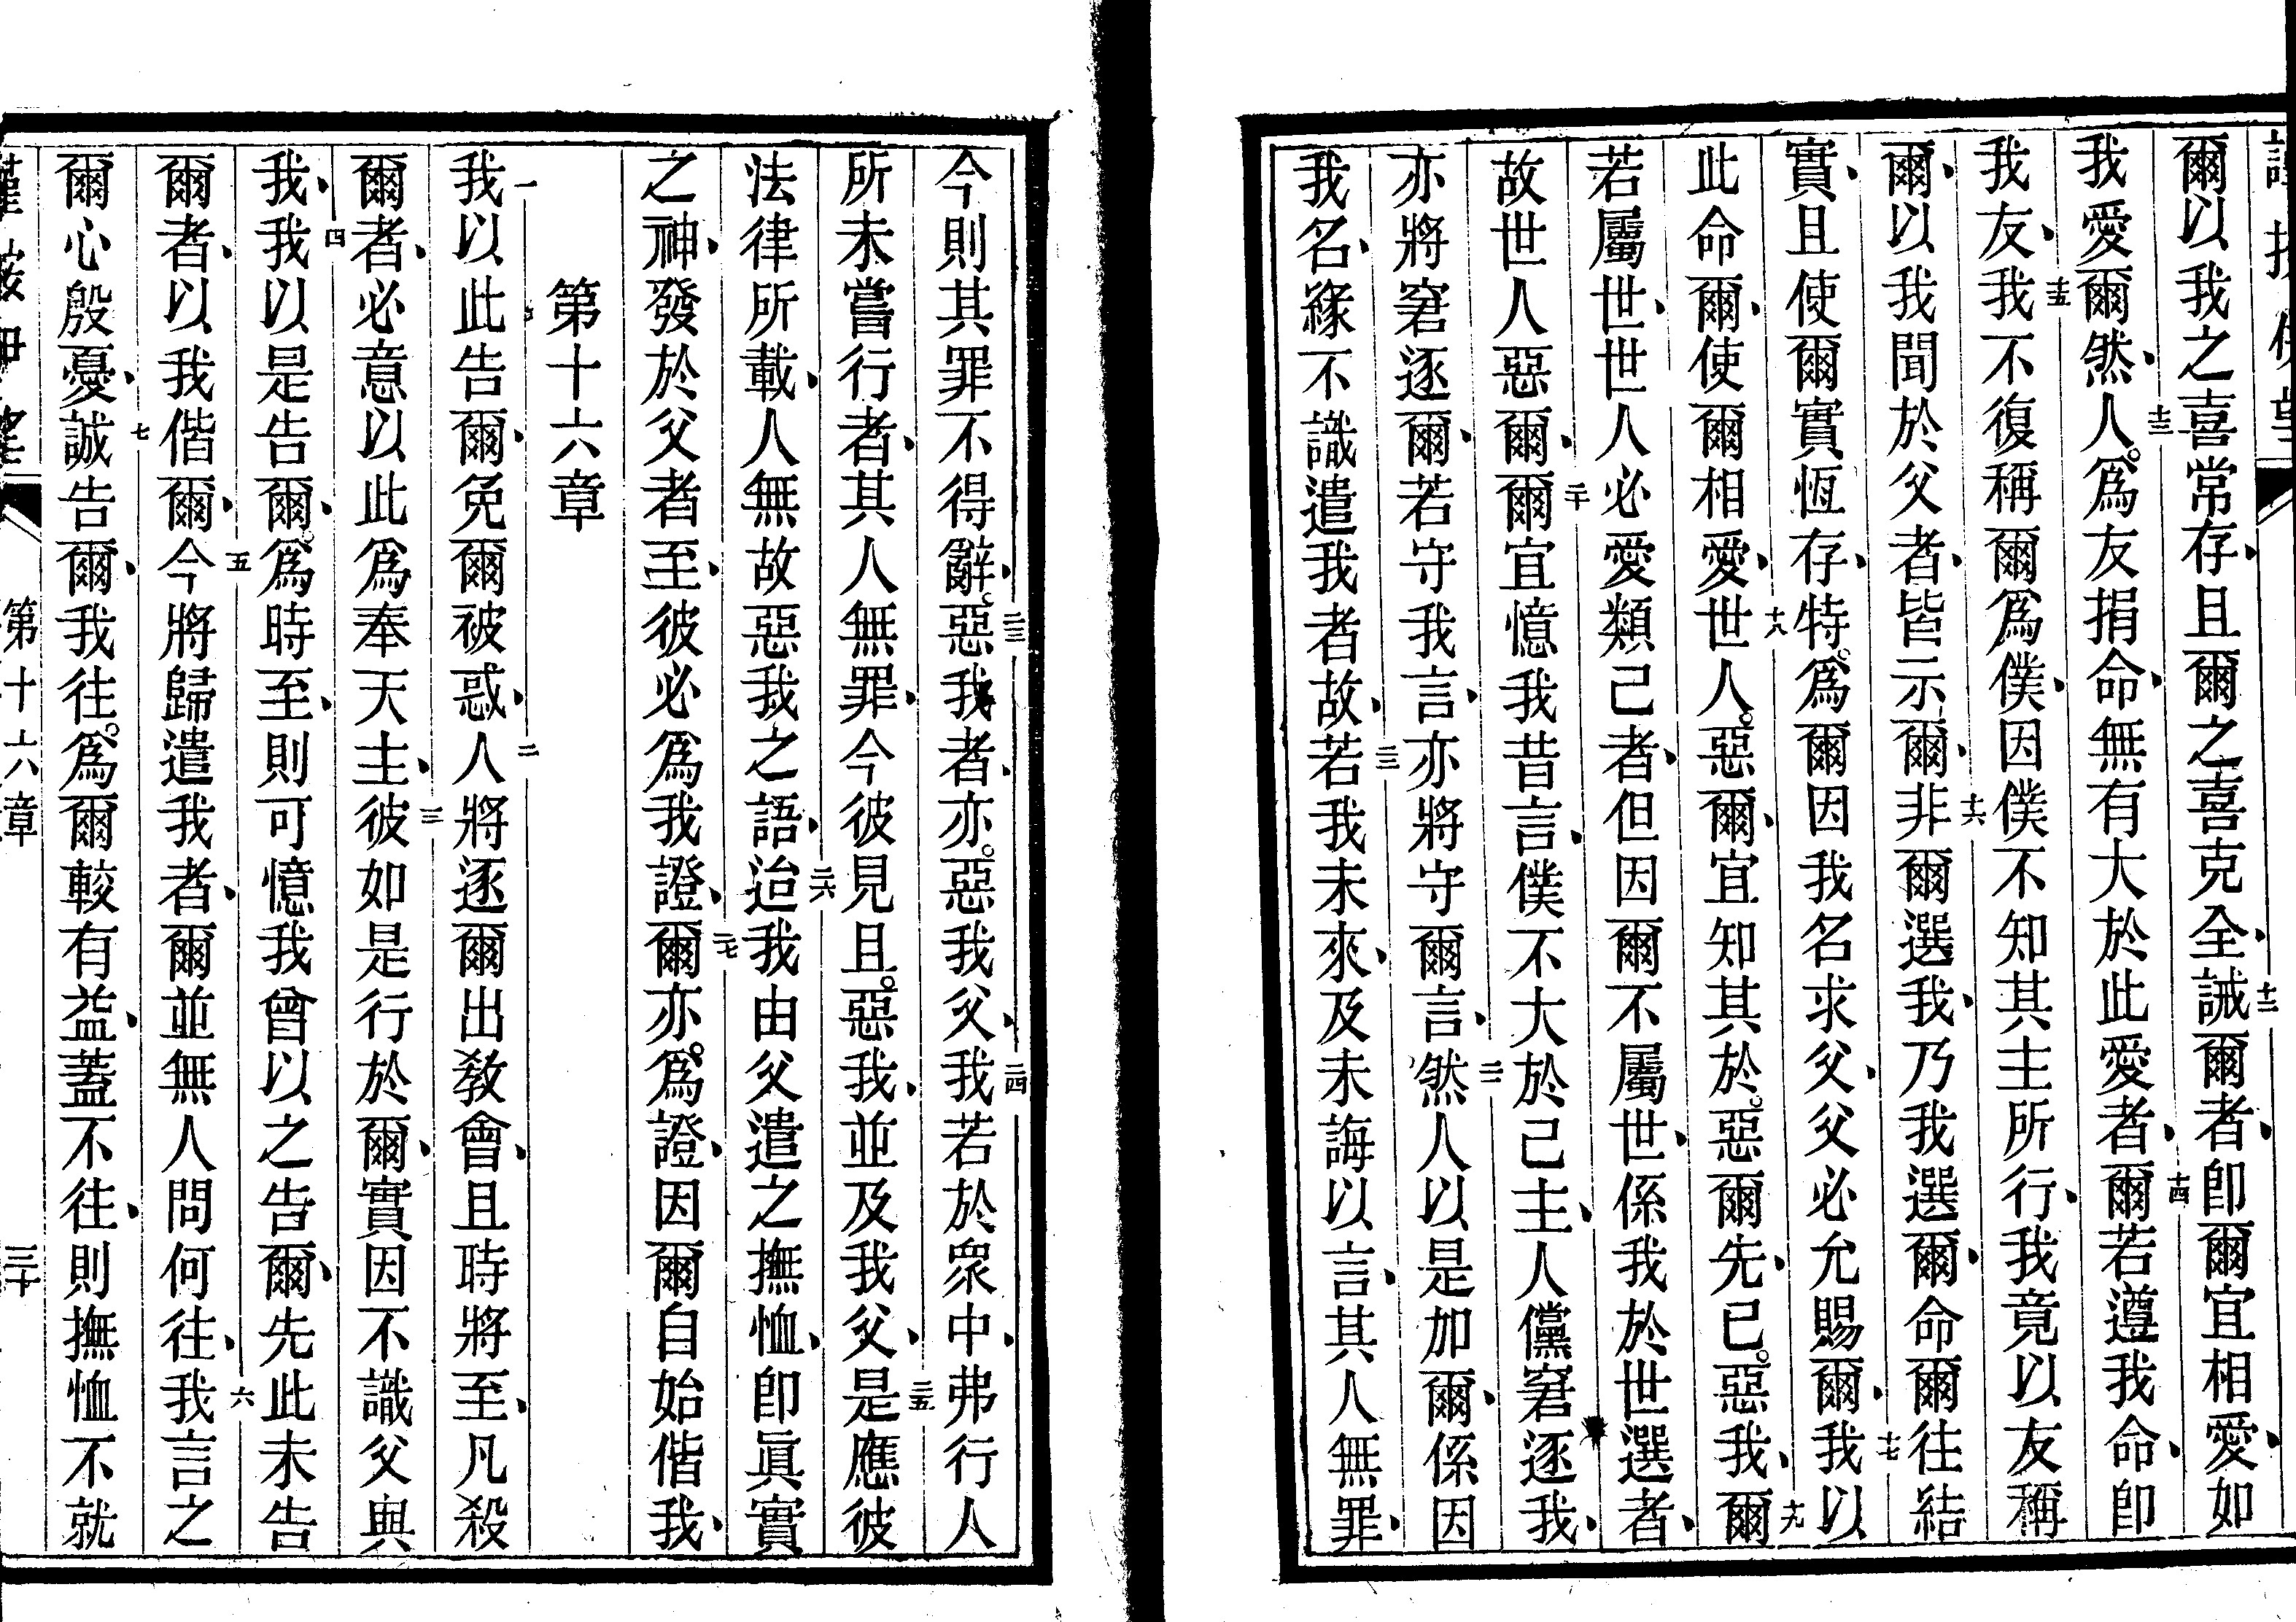 爾以我之喜常存、且爾之喜克全、十二誡爾者、卽爾宜相愛、如
我愛爾然、十三人爲友捐命、無有大於此愛者、十四爾若遵我命、卽
我友、十五我不復稱爾爲僕、因僕不知其主所行、我竟以友稱
爾、以我聞於父者、皆示爾、十六非爾選我、乃我選爾、命爾往結
實、且使爾實恆存、特爲爾因我名求父、父必允賜爾、十七我以
此命爾、使爾相愛、十八世人惡爾、宜知其於惡爾先、已惡我、十九爾
若屬世、世人必愛類己者、但因爾不屬世、係我於世選者、
故世人惡爾、二十爾宜憶我昔言、僕不大於己主、人儻窘逐我、
亦將窘逐爾、若守我言、亦將守爾言、二一然人以是加爾、係因
我名、緣不識遣我者故、二二若我未來、及未誨以言、其人無罪、
今則其罪不得辭、二三惡我者、亦惡我父、二四我若於眾中、弗行人
所未嘗行者、其人無罪、今彼見且惡我、並及我父、二五是應彼
法律所載、人無故惡我之語、二六迨我由父遣之撫恤、卽眞實
之神、發於父者至、彼必爲我證、二七爾亦爲證、因爾自始偕我、
第十六章
一我以此告爾、免爾被惑、二人將逐爾出教會、且時將至、凡殺
爾者、必意以此爲奉天主、三彼如是行於爾、實因不識父與
我、四我以是告爾、爲時至、則可憶我曾以之告爾、先此未告
爾者、以我偕爾、五今將歸遣我者、爾並無人問何往、六我言之
爾心殷憂、七誠告爾、我往爲爾較有益、蓋不往、則撫恤不就
第十六章
三十